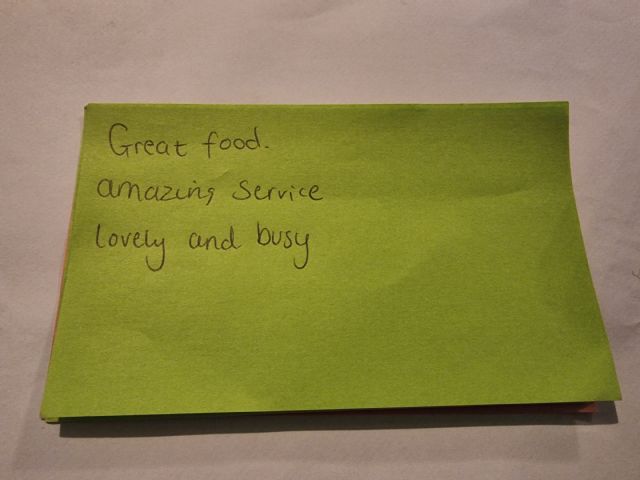 Great food.
amazing service
lovely and busy